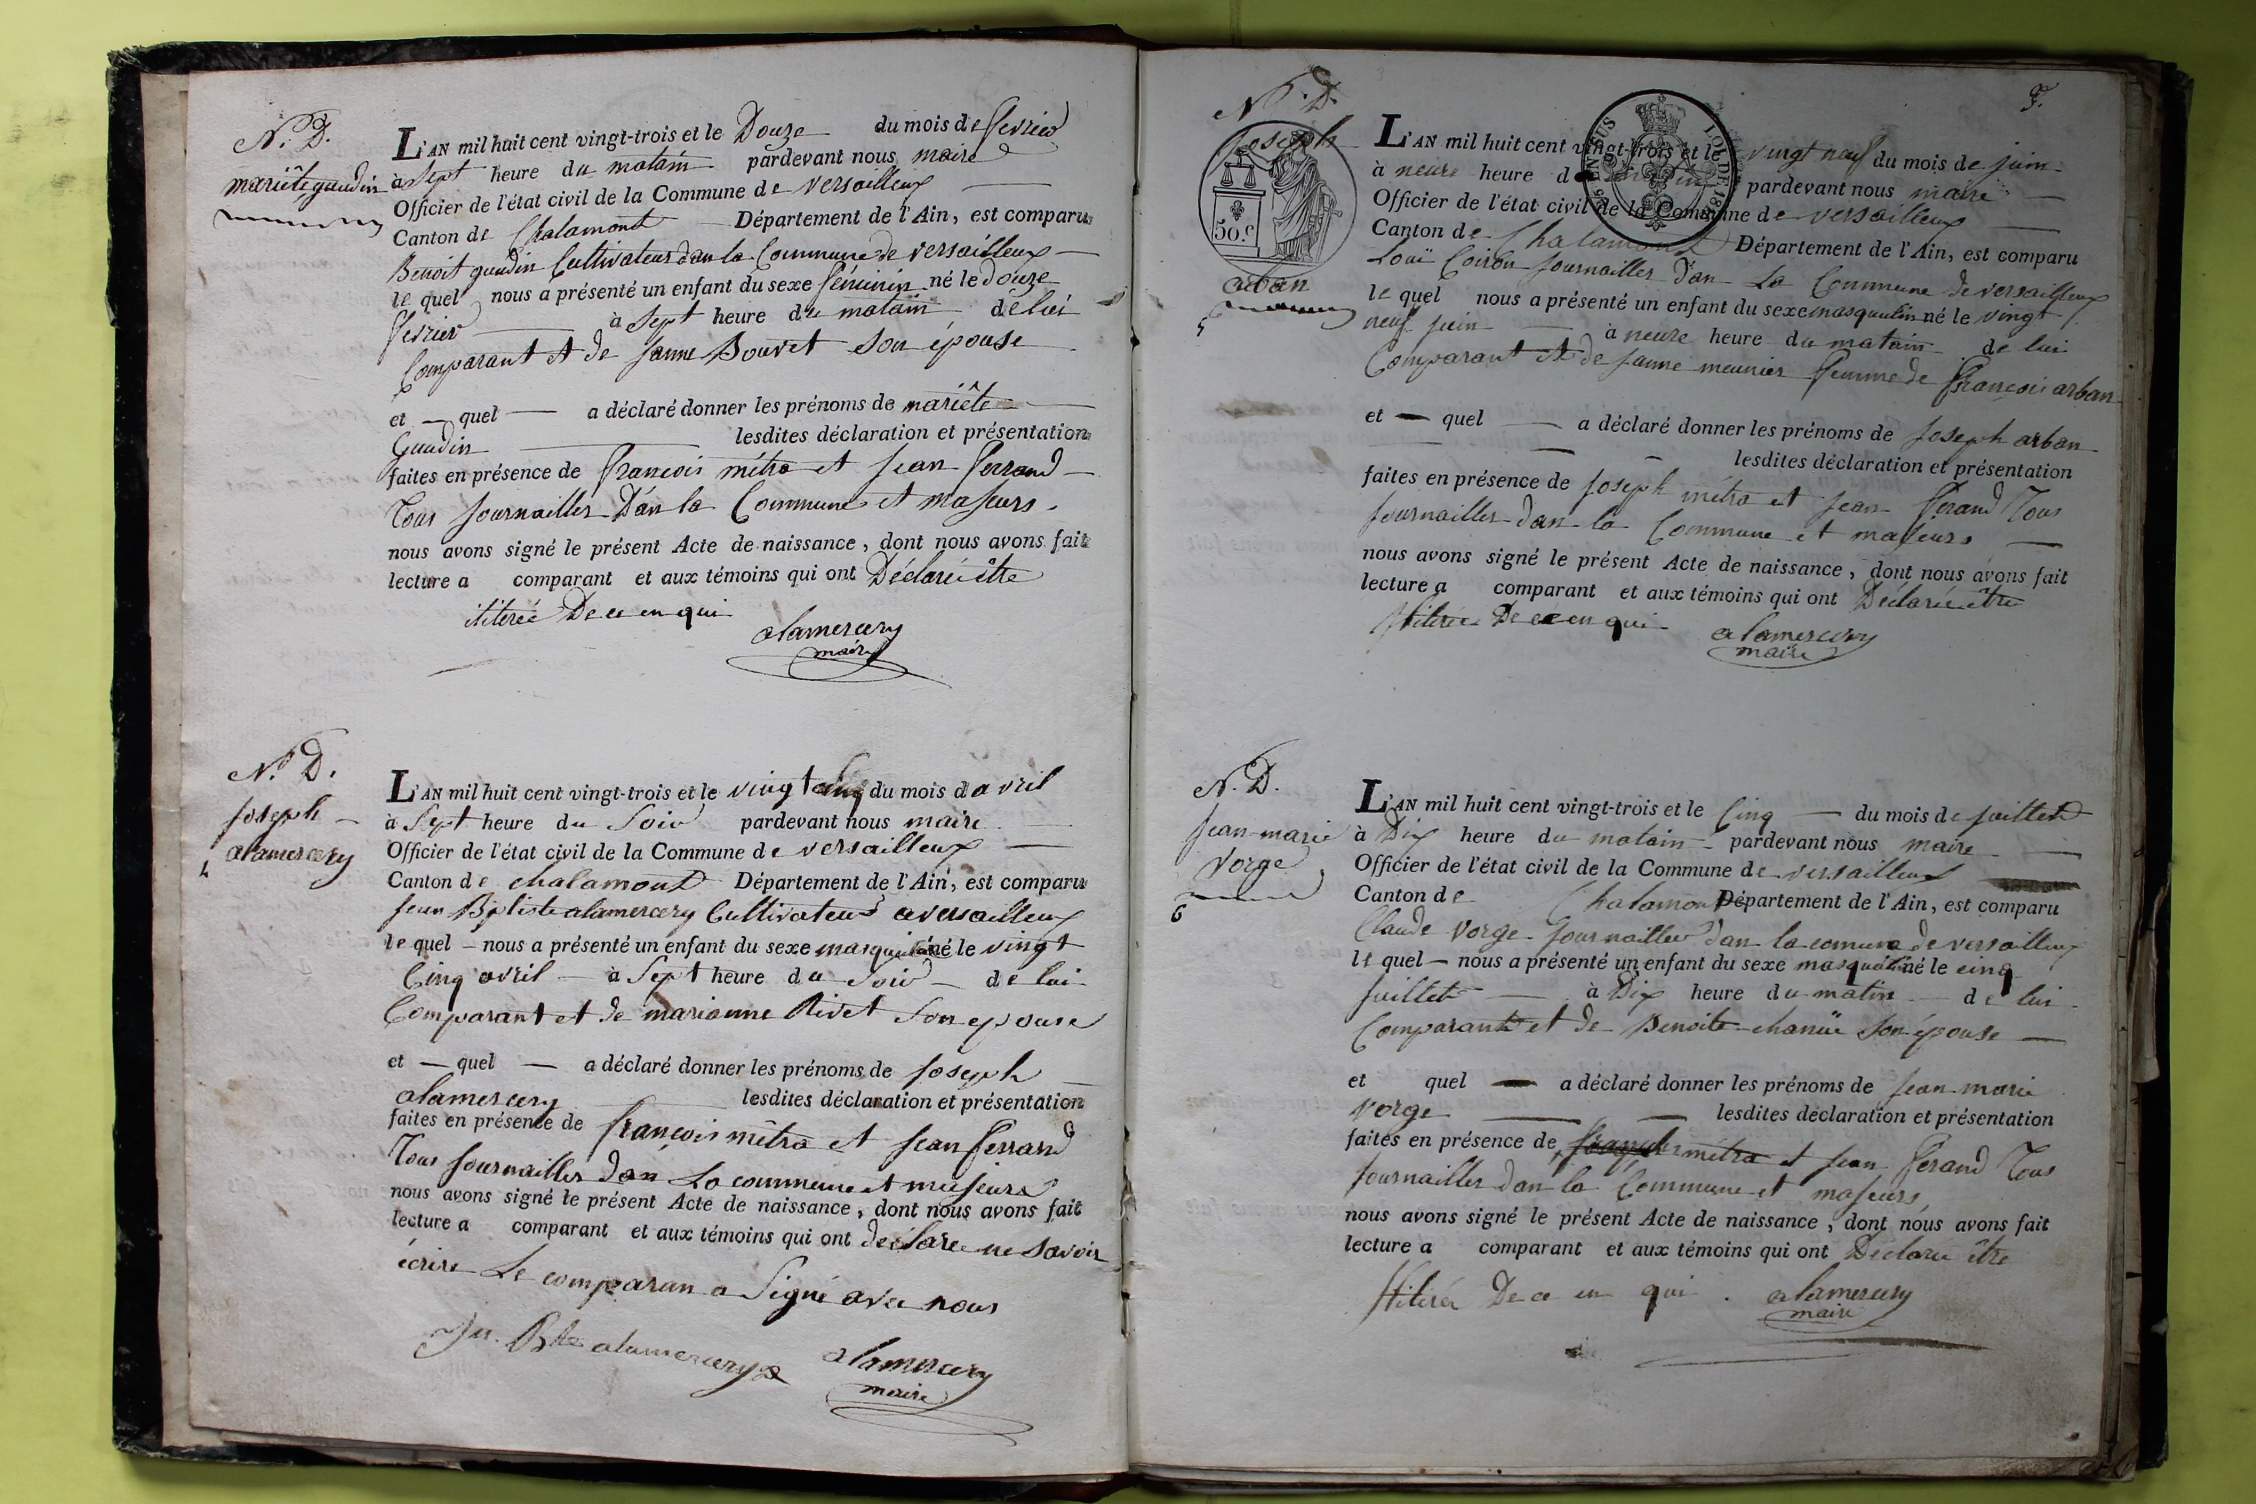 N. D.
mariête gaudin
L'AN mil huit cent vingt-trois et le Douze du mois de fevrier
à Sept heure du matain pardevant nous maire
Officier de l'état civil de la Commune de versailleux
Canton de Chalamont Département de l'Ain, est comparu
Benoit gaudin Cultivateur dan la Commune de versailleux
le quel nous a présenté un enfant du sexe féminin né le douze
fevrier à sept heure du matain de lui
Comparant et de janne Bouvet son épouse
et quel a déclaré donner les prénoms de mariête
Gaudin lesdites déclaration et présentation
faites en présence de françois métra et jean ferrand
Tous journailler Dan la Commune et majeurs
nous avons signé le présent Acte de naissance, dont nous avons fait
lecture a comparant et aux témoins qui ont Déclaré être
ititeré De ce en qui
alamercery
maire
N. D.
joseph
alamercery
4
L'AN mil huit cent vingt-trois et le vingt cinq du mois d avril
à Sept heure du Soir pardevant nous maire
Officier de l'état civil de la Commune de versailleux
Canton de chalamont Département de l'Ain, est comparu
jean Bptiste alamercery Cultivateur a versailleux
le quel nous a présenté un enfant du sexe masqulin né le vingt
Cinq avril à Sept heure du Soir de lui
Comparant et de marianne Rivet Son epouse
et quel a déclaré donner les prénoms de joseph
alamercery lesdites déclaration et présentation
faites en présence de françois métra et jean ferrand
Tous journailler dan La commune et majeurs
nous avons signé le présent Acte de naissance, dont nous avons fait
lecture a comparant et aux témoins qui ont declare ne Savoir
écrire Le comparan a Signé avec nous
Jn. Bte alamercery
alamercery
maire
F.
N. D.
joseph
50.c
arban
5
L'AN mil huit cent vingt-trois et le vingt neuf du mois de juin
à neure heure du matain pardevant nous maire
Officier de l'état civil de la Commune de versailleux
Canton de Chalamont Département de l'Ain, est comparu
Louï Coirou journailler Dan La Commune de versailleux
le quel nous a présenté un enfant du sexe masqulin né le vingt
neuf juin à neure heure du matain de lui
Comparant et de janne meunier femme de françois arban
et quel a déclaré donner les prénoms de joseph arban
lesdites déclaration et présentation
faites en présence de joseph métra et jean ferand Tous
journailler dan la Commune et majeurs
nous avons signé le présent Acte de naissance, dont nous avons fait
lecture a comparant et aux témoins qui ont Déclaré être
ititeré De ce en qui
alamercery
maire
N. D.
jean marie
vorge
6
L'AN mil huit cent vingt-trois et le Cinq du mois de juillet
à Dix heure du matain pardevant nous maire
Officier de l'état civil de la Commune de versailleux
Canton de Chalamont Département de l'Ain, est comparu
Claude vorge journailler dan la comune de versailleux
le quel nous a présenté un enfant du sexe masqulin né le cinq
juillet à Dix heure du matin de lui
Comparant et de Benoite chanüe Son épouse
et quel a déclaré donner les prénoms de jean marie
vorge lesdites déclaration et présentation
faites en présence de métra et jean ferand Tous
journailler dan la Commune et majeurs
nous avons signé le présent Acte de naissance, dont nous avons fait
lecture a comparant et aux témoins qui ont Déclaré être
ititeré De ce en qui
alamercery
maire